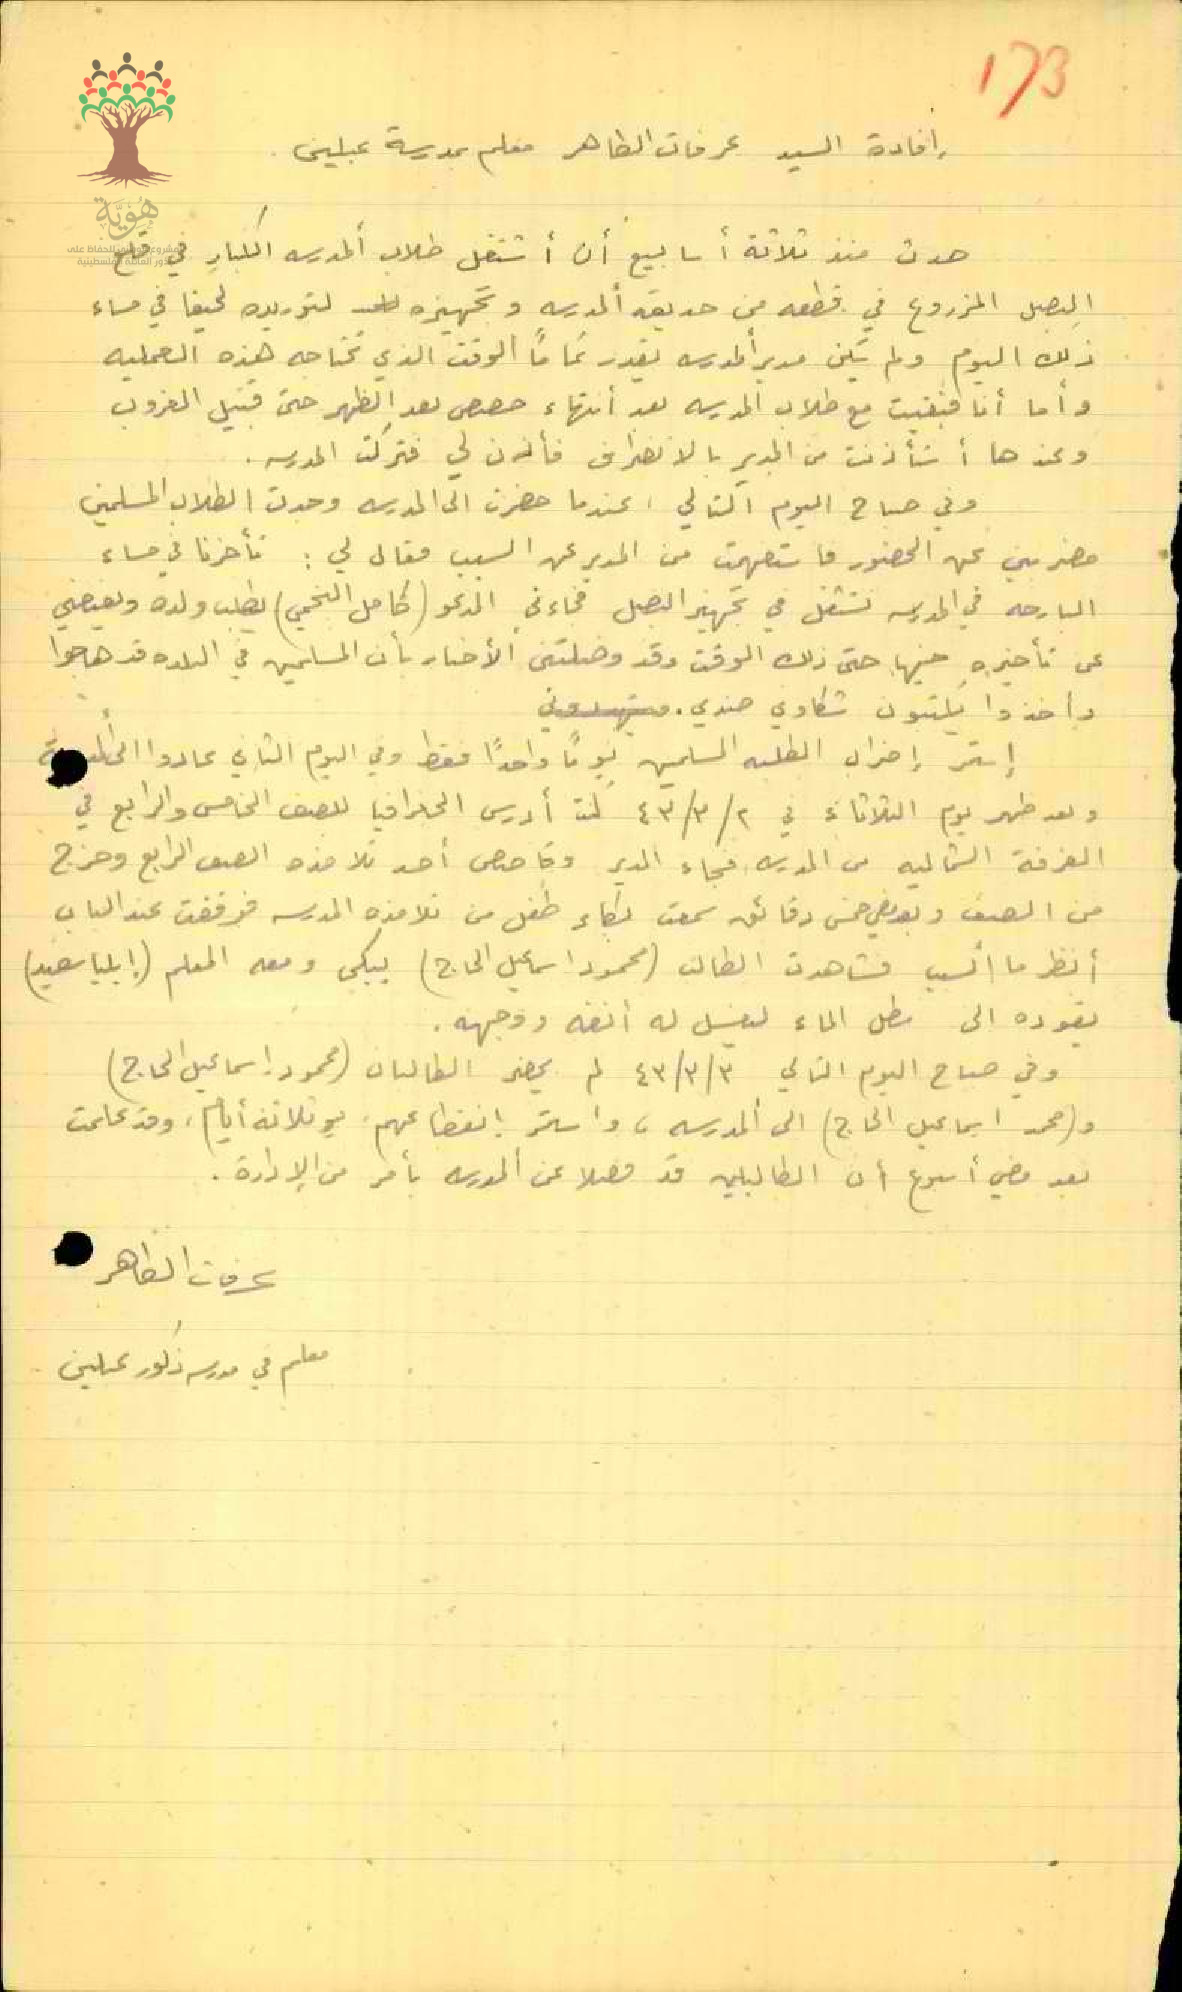 173
إفادة السيد عرفات الظاهر معلم بمدرسة عبلين.
هُوِيَّة
حدث منذ ثلاثة أسابيع أن أشتغل طلاب ألمدرسه الكبار في قلع
البصل المزروع في قطعه من حديقة ألمدرسه وتجهيزه لتوريده لحيفا في مساء
ذلك اليوم ولم يكن مدير ألمدرسه يقدر تمامًا الوقت الذي تحتاجه هذه العمليه
وأما أنا فبقيت مع طلاب المدرسه بعد أنتهاء حصص بعد الظهر حتى قبيل الغروب
وعندها أستأذنت من المدير بالانصراف فأذن لي فتركت المدرسه.
وفي صباح اليوم التالي عندما حضرت الى المدرسه وجدت الطلاب المسلمين
مضربين عن الحضور فاستفهمت من المدير عن السبب فقال لي: تأخرنا في مساء
البارحه في المدرسه نشتغل في تجهيز البصل فجاءني المدعو (كامل النجمي) يطلب ولده
عن تأخيره حتى ذلك الوقت وقد وصلتني ألأخبار بأن المسلمين في البلده قد هاجوا
وأخذوا يكتبون شكاوي ضدي.
إستمر إضراب الطلبه المسلمين يومًا واحدًا فقط وفي اليوم الثاني عادوا الى
وبعد ظهر يوم الثلاثاء في ٢/٣/٤٣ كنت أدرس الجغرافيا للصف الخامس والرابع في
الغرفة الشماليه من المدرسه فجاء المدير وقاصص أحد تلامذه الصف الرابع وخرج
من الصف وبعد مضي خمس دقائق سمعت بكاء طفل من تلامذه المدرسه فوقفت عند الباب
أنظر ما ألسبب فشاهدت الطالب (محمود اسماعيل الحاج) يبكي ومعه المعلم (إيليا سعيد)
يقوده الى الماء ليغسل له أنفه ووجهه.
وفي صباح اليوم التالي ٣/٣/٤٣ لم يحضر الطالبان (محمود اسماعيل الحاج)
و(محمد اسماعيل الحاج) الى ألمدرسه، واستمر انقطاعهم ثلاثة أيام، وقد علمت
بعد مضي أسبوع أن الطالبين قد فصلا عن ألمدرسه بأمر من الإدارة.
عرفات الظاهر
معلم في مدرسه ذكور عبلين